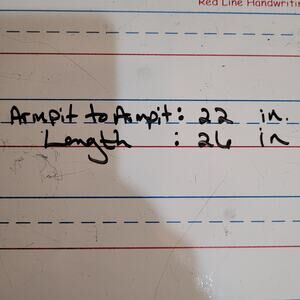 Red Line Handwritin
Armpit to Armpit: 22 in.
Length : 26 in